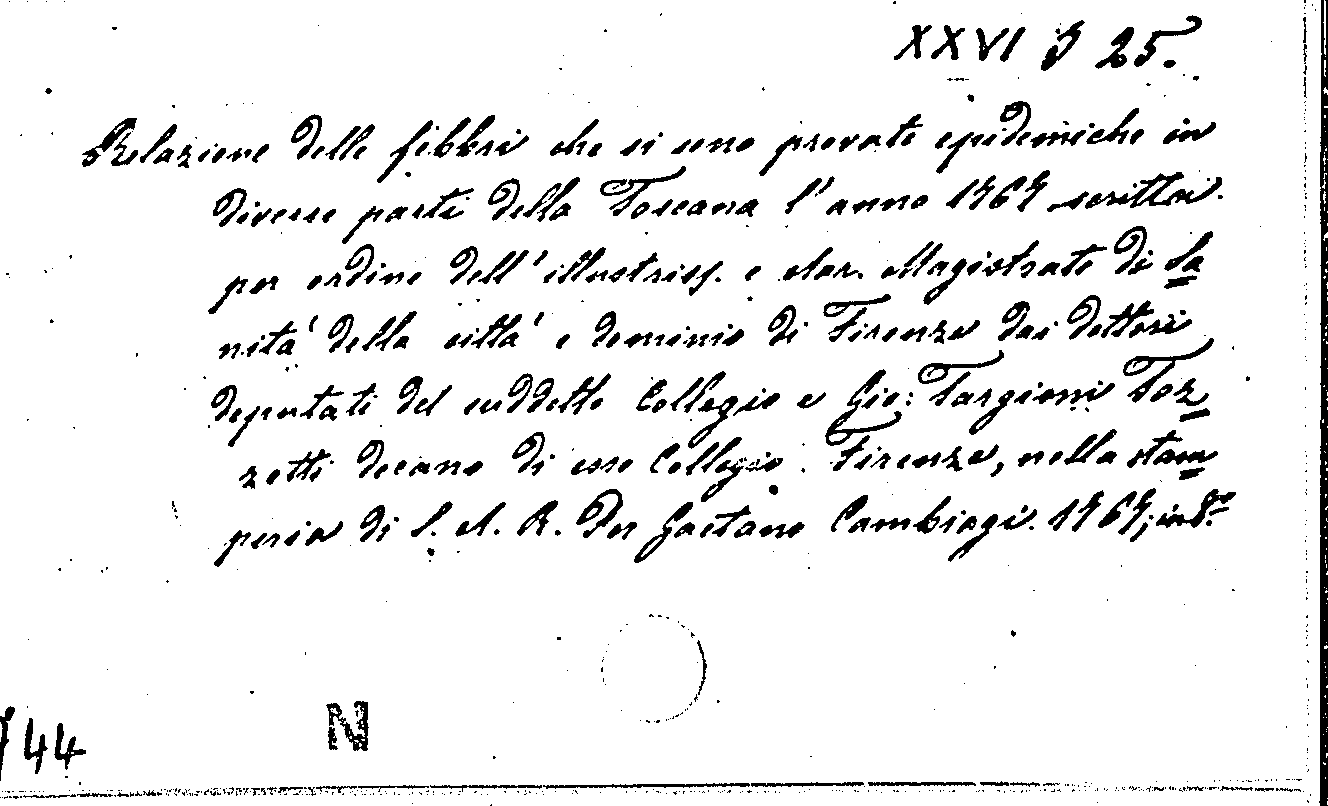 XXVI J 25.
Relazione delle febbri che si sono provate epidemiche in
diverse parti della Toscana l'anno 1767 scritta
per ordine dell'illustriss. e clar. Magistrato di Sa
nità della città e dominio di Firenze dai dottori
deputati del suddetto Collegio e Gio: Targioni Toz
zetti decano di esso Collegio. Firenze, nella stam
peria di S. A. R. Per Gaetano Cambiagi. 1767, in 8.º
44
N